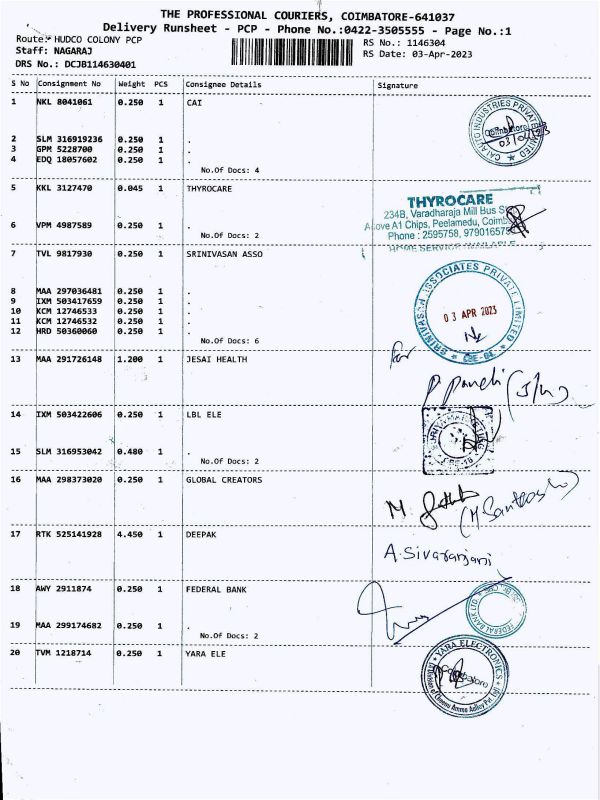 THE PROFESSIONAL COURIERS, COIMBATORE-641037
Delivery Runsheet - PCP - Phone No.:0422-3505555 - Page No.:1
Route: HUDCO COLONY PCP
RS No.: 1146304
Staff: NAGARAJ
RS Date: 03-Apr-2023
DRS No.: DCJB114630401
S No Consignment No Weight PCS Consignee Details Signature
1 NKL 8041061 0.250 1 CAI
CAI AUTO INDUSTRIES PRIVATE LIMITED
Coimbatore
03/04/23
2 SLM 316919236 0.250 1 .
3 GPM 5228700 0.250 1 .
4 EDQ 18057602 0.250 1 .
No.Of Docs: 4
5 KKL 3127470 0.045 1 THYROCARE
THYROCARE
234B, Varadharaja Mill Bus
Above A1 Chips, Peelamedu,
Phone : 2595758,
HOME SERVICE AVAILABLE
6 VPM 4987589 0.250 1 .
No.Of Docs: 2
7 TVL 9817930 0.250 1 SRINIVASAN ASSO
SRINIVASAN ASSOCIATES PRIVATE LIMITED
03 APR 2023
8 MAA 297036481 0.250 1 .
9 IXM 503417659 0.250 1 .
10 KCM 12746533 0.250 1 .
11 KCM 12746532 0.250 1 .
12 HRD 50360060 0.250 1 .
No.Of Docs: 6
for
13 MAA 291726148 1.200 1 JESAI HEALTH
14 IXM 503422606 0.250 1 LBL ELE
15 SLM 316953042 0.480 1 .
No.Of Docs: 2
16 MAA 298373020 0.250 1 GLOBAL CREATORS
17 RTK 525141928 4.450 1 DEEPAK
A.Sivaranjani
18 AWY 2911874 0.250 1 FEDERAL BANK
FEDERAL BANK LTD
19 MAA 299174682 0.250 1 .
No.Of Docs: 2
20 TVM 1218714 0.250 1 YARA ELE
YARA ELECTRONICS
Coimbatore